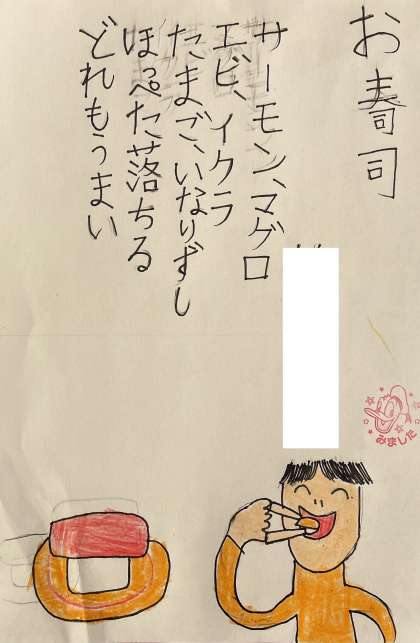 お寿司
サーモン、マグロ
エビ、イクラ
たまご、いなりずし
ほっぺた落ちる
どれもうまい
みました